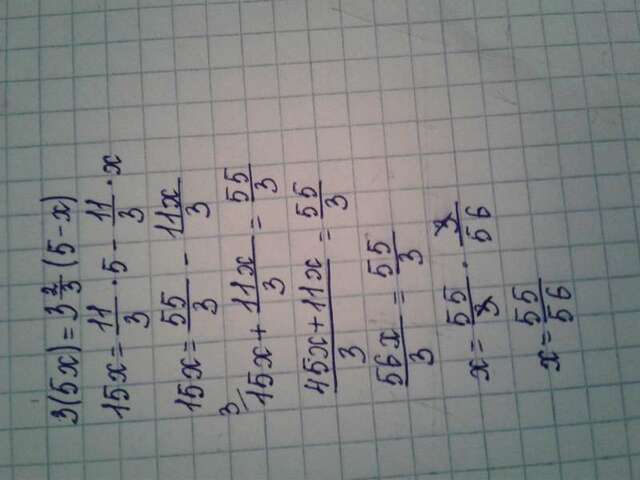 3(5x) = 3 2/3 (5 - x)
15x = 11/3 · 5 - 11/3 · x
15x = 55/3 - 11x/3
3/ 15x + 11x/3 = 55/3
45x + 11x/3 = 55/3
56x/3 = 55/3
x = 55/3 · 3/56
x = 55/56